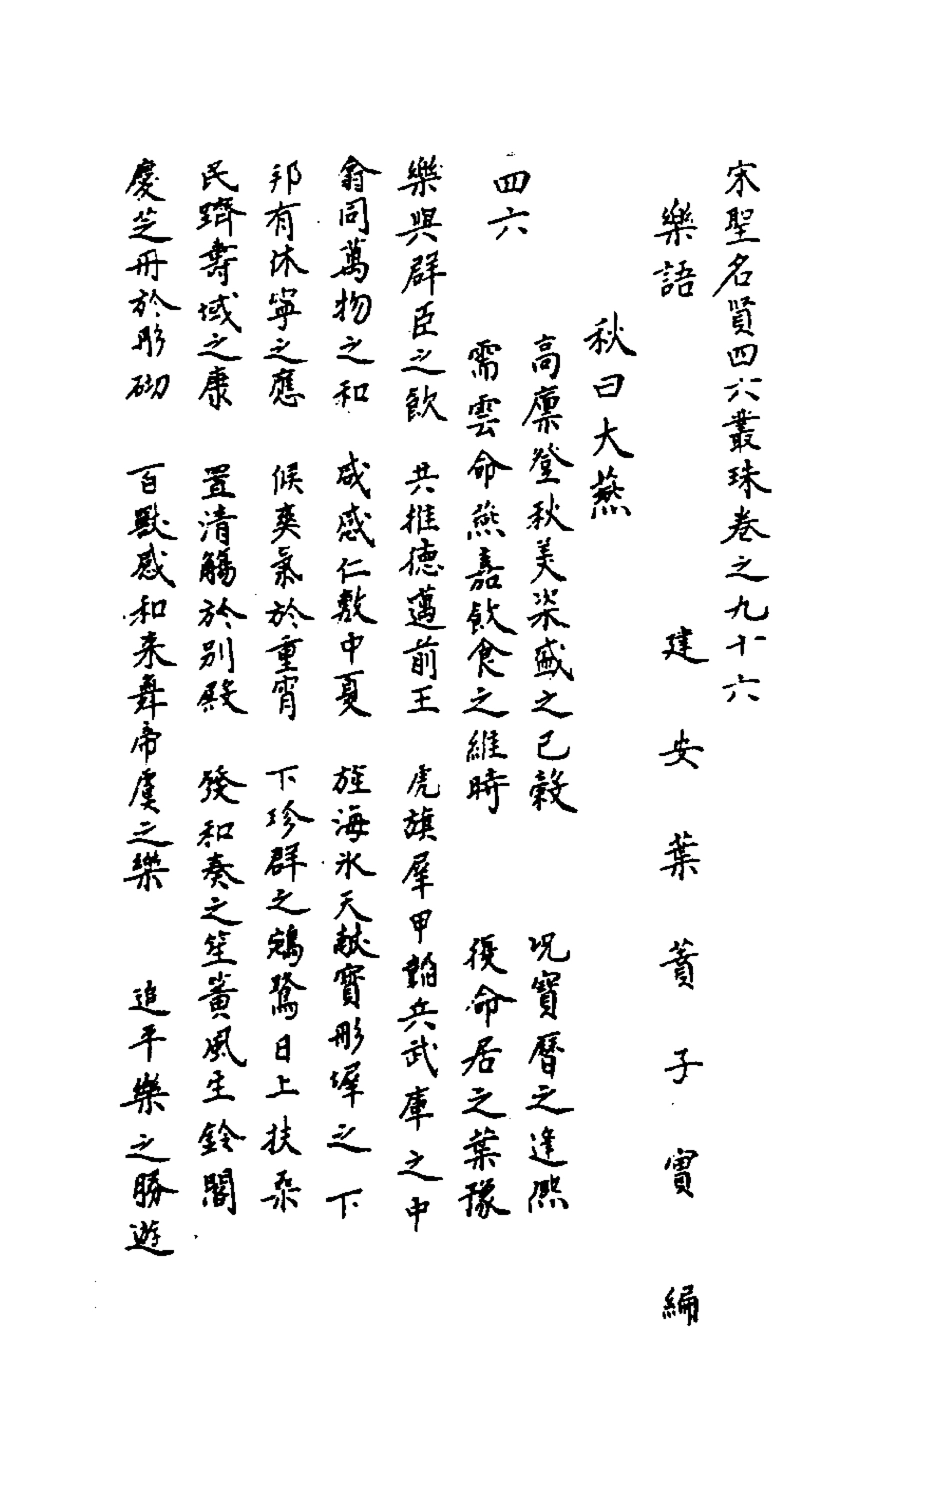 宋聖名賢四六叢珠卷之九十六
樂語　建安葉蕡子實編
秋日大燕
四六
高廩登秋美粢盛之已榖　况寶曆之逢熈
需雲命燕嘉飲食之維時　復命居之葉豫
樂與群臣之飲　共推德邁前王　虎旗犀甲韜兵武庫之中
翕同萬物之和　咸感仁敷中夏　旌海氷天献寳彤墀之下
邦有休寧之應　候爽氣於重宵　下珍群之鵷鷺日上扶桒
民躋壽域之康　置清觴於别殿　發和奏之笙簧風生鈴閣
慶芝冊於彤砌　百獸感和来舞帝虞之樂　追平樂之勝遊